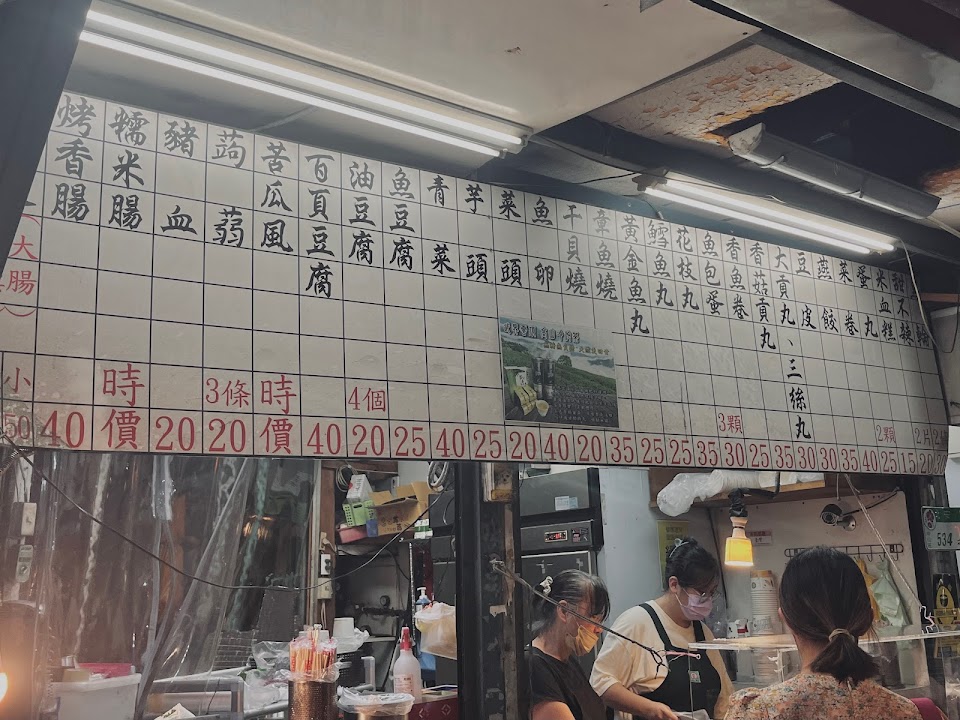 甜不辣 2片 20
米血糕 15
蛋丸 2顆 25
菜卷 40
燕餃 35
豆皮 30
大貢丸、三絲丸 30
香菇貢丸 35
香魚卷 25
魚包蛋 3顆 30
花枝丸 35
鱈魚丸 25
黃金魚丸 25
章魚燒 35
干貝燒 20
魚卵 40
菜頭 20
芋頭 25
青菜 40
魚豆腐 25
油豆腐 4個 20
百頁豆腐 40
苦瓜風 時價
蒟蒻 3條 20
豬血 20
糯米腸 時價
烤香腸 40
(大腸) 小 50
534